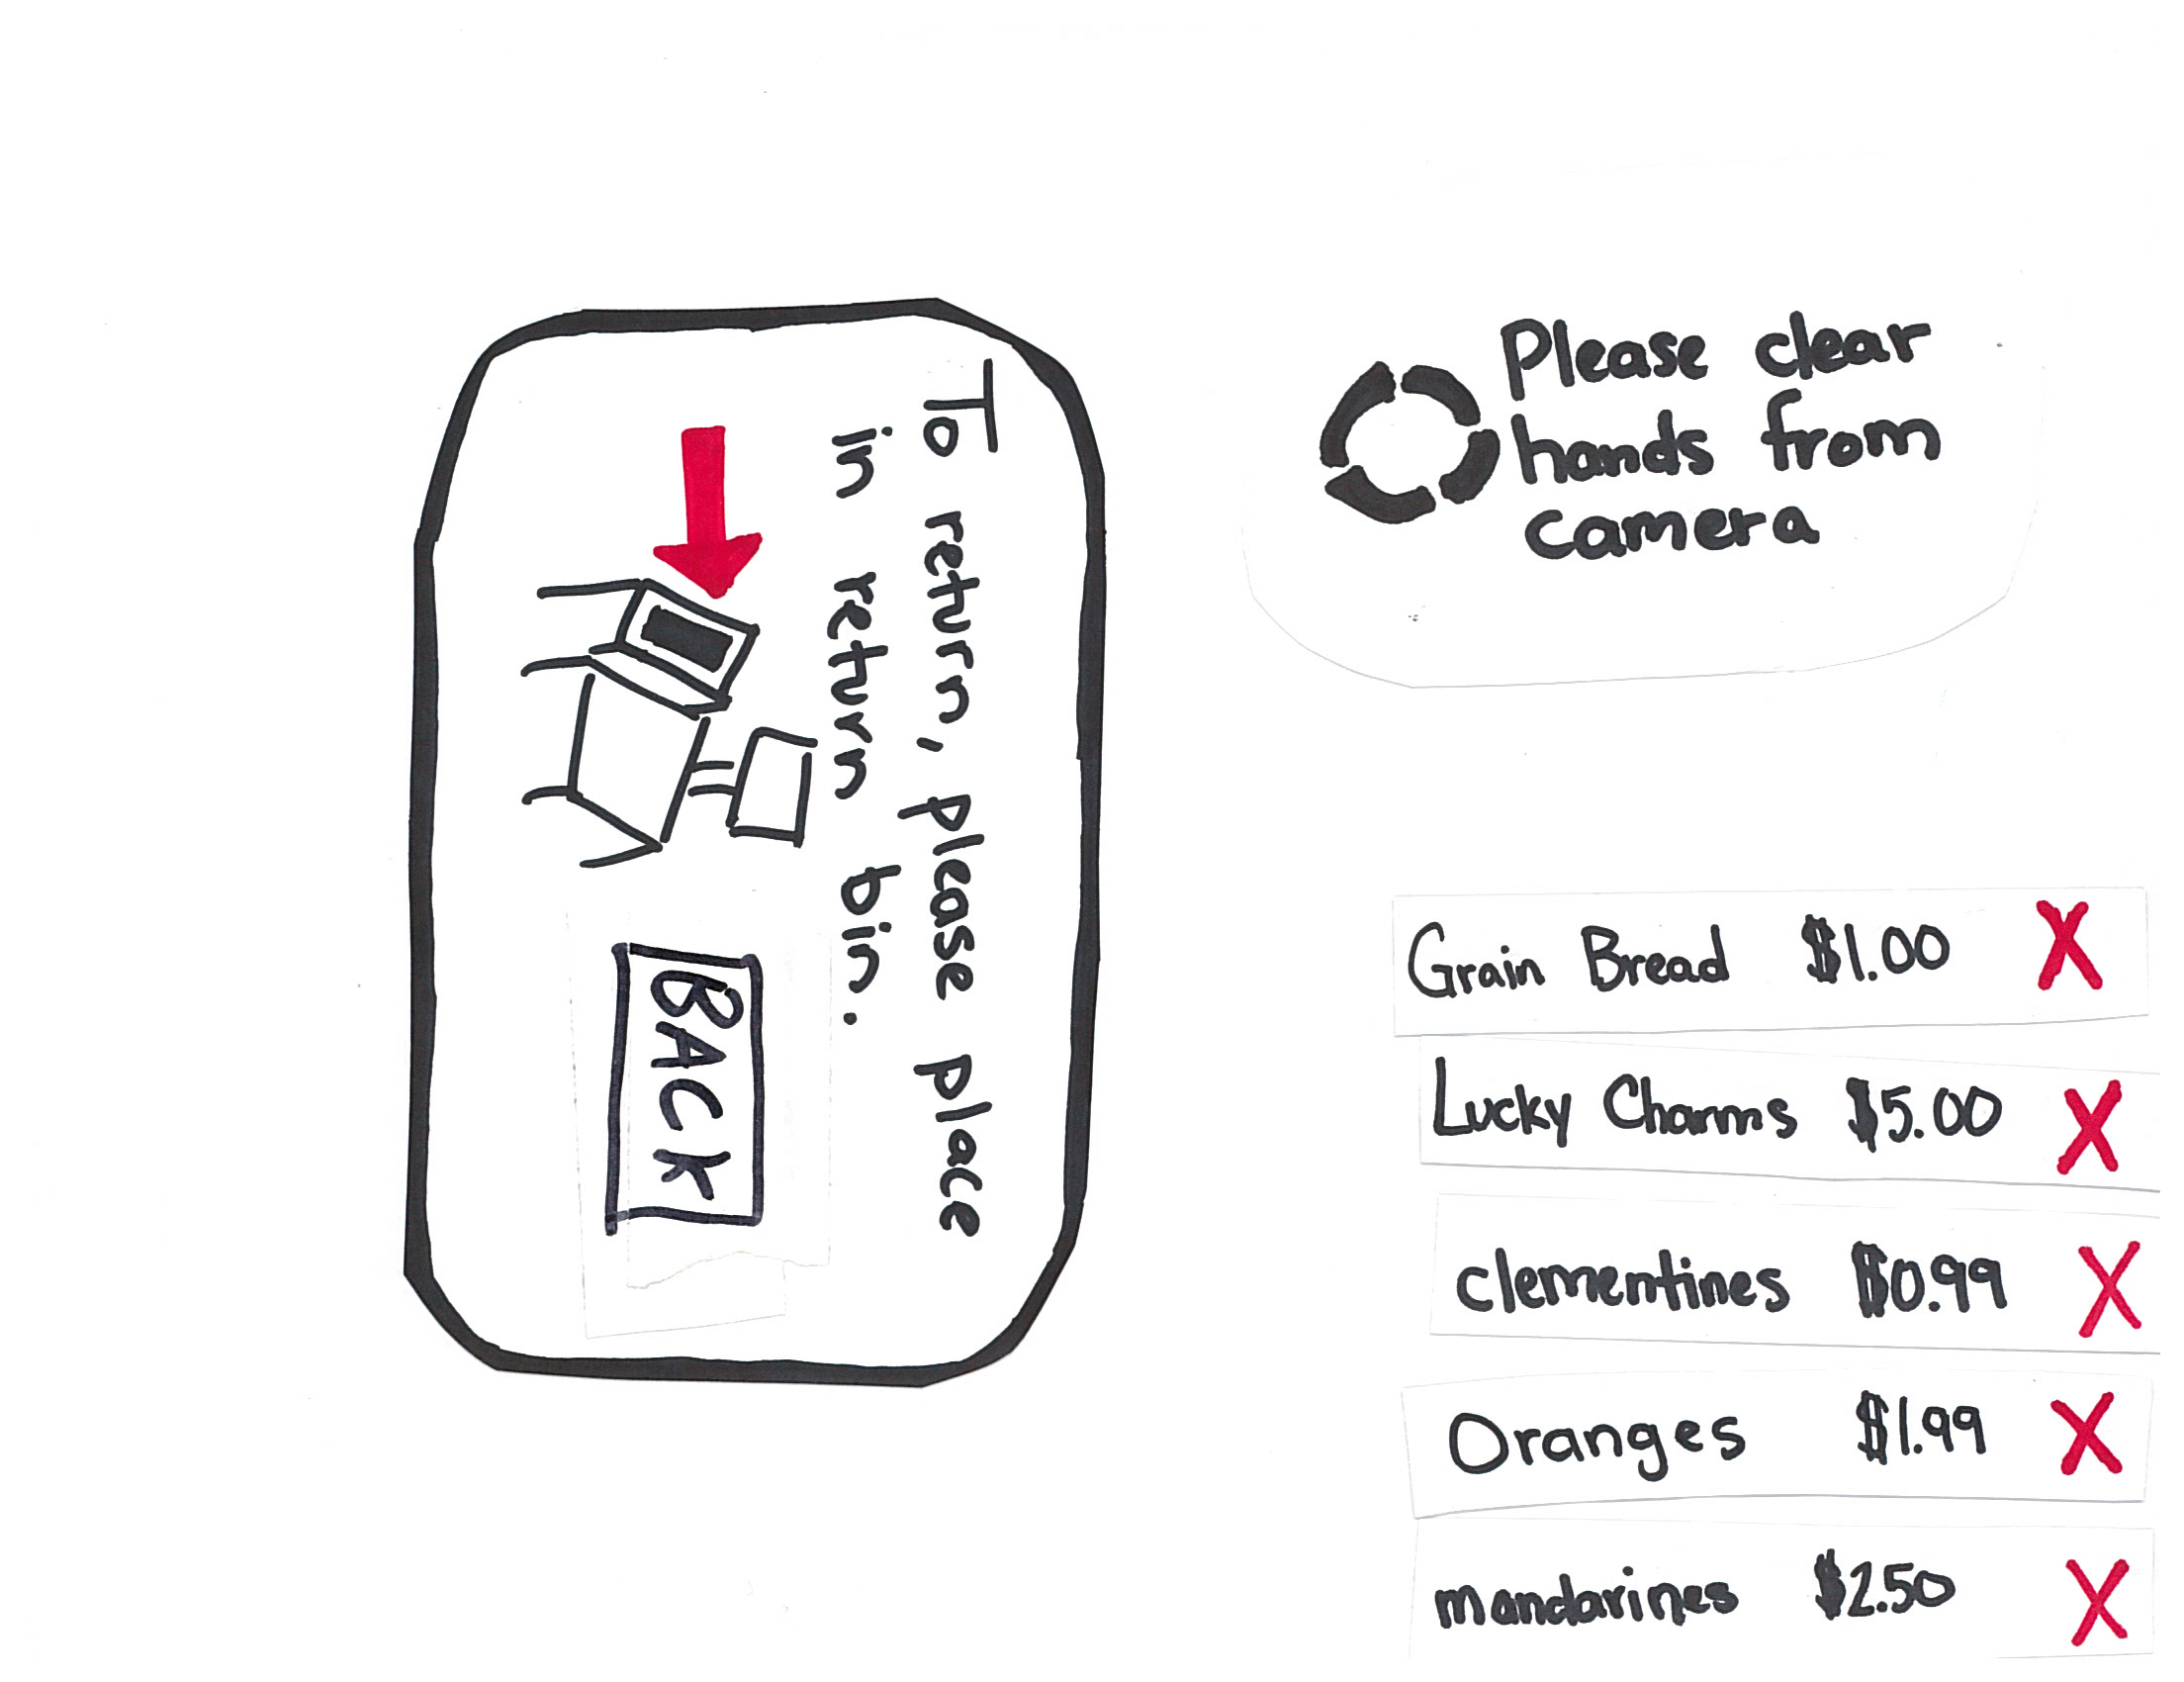 To return, please place
in return bin.
BACK
Please clear
hands from
camera
Grain Bread $1.00 X
Lucky Charms $5.00 X
clementines $0.99 X
Oranges $1.99 X
mandarines $2.50 X